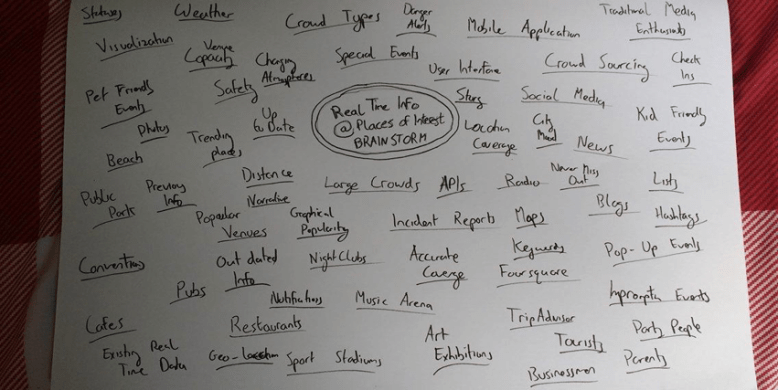 Statuses
Weather
Crowd Types
Danger
Alerts
Mobile Application
Traditional Media
Enthusiasts
Visualization
Venue
Capacity
Changing
Atmospheres
Special Events
User Interface
Crowd Sourcing
Check
Ins
Pet Friendly
Events
Safety
Real Time Info
@ Places of Interest
BRAINSTORM
Story
Social Media
Photos
Trending
places
Up
to Date
Location
Coverage
City
Mood
News
Kid Friendly
Events
Beach
Public
Park
Previous
Info
Distance
Narrative
Large Crowds
APIs
Radio
Never Miss
Out
Lists
Popular
Venues
Graphical
Popularity
Incident Reports
Maps
Blogs
Hashtags
Conventions
Out dated
Info
NightClubs
Accurate
Keywords
Foursquare
Pop-Up Events
Pubs
Notifications
Music Arena
Impromptu Events
Cafes
Restaurants
TripAdvisor
Party People
Existing Real
Time Data
Geo-location
Sport Stadiums
Art
Exhibitions
Tourists
Businessmen
Parents